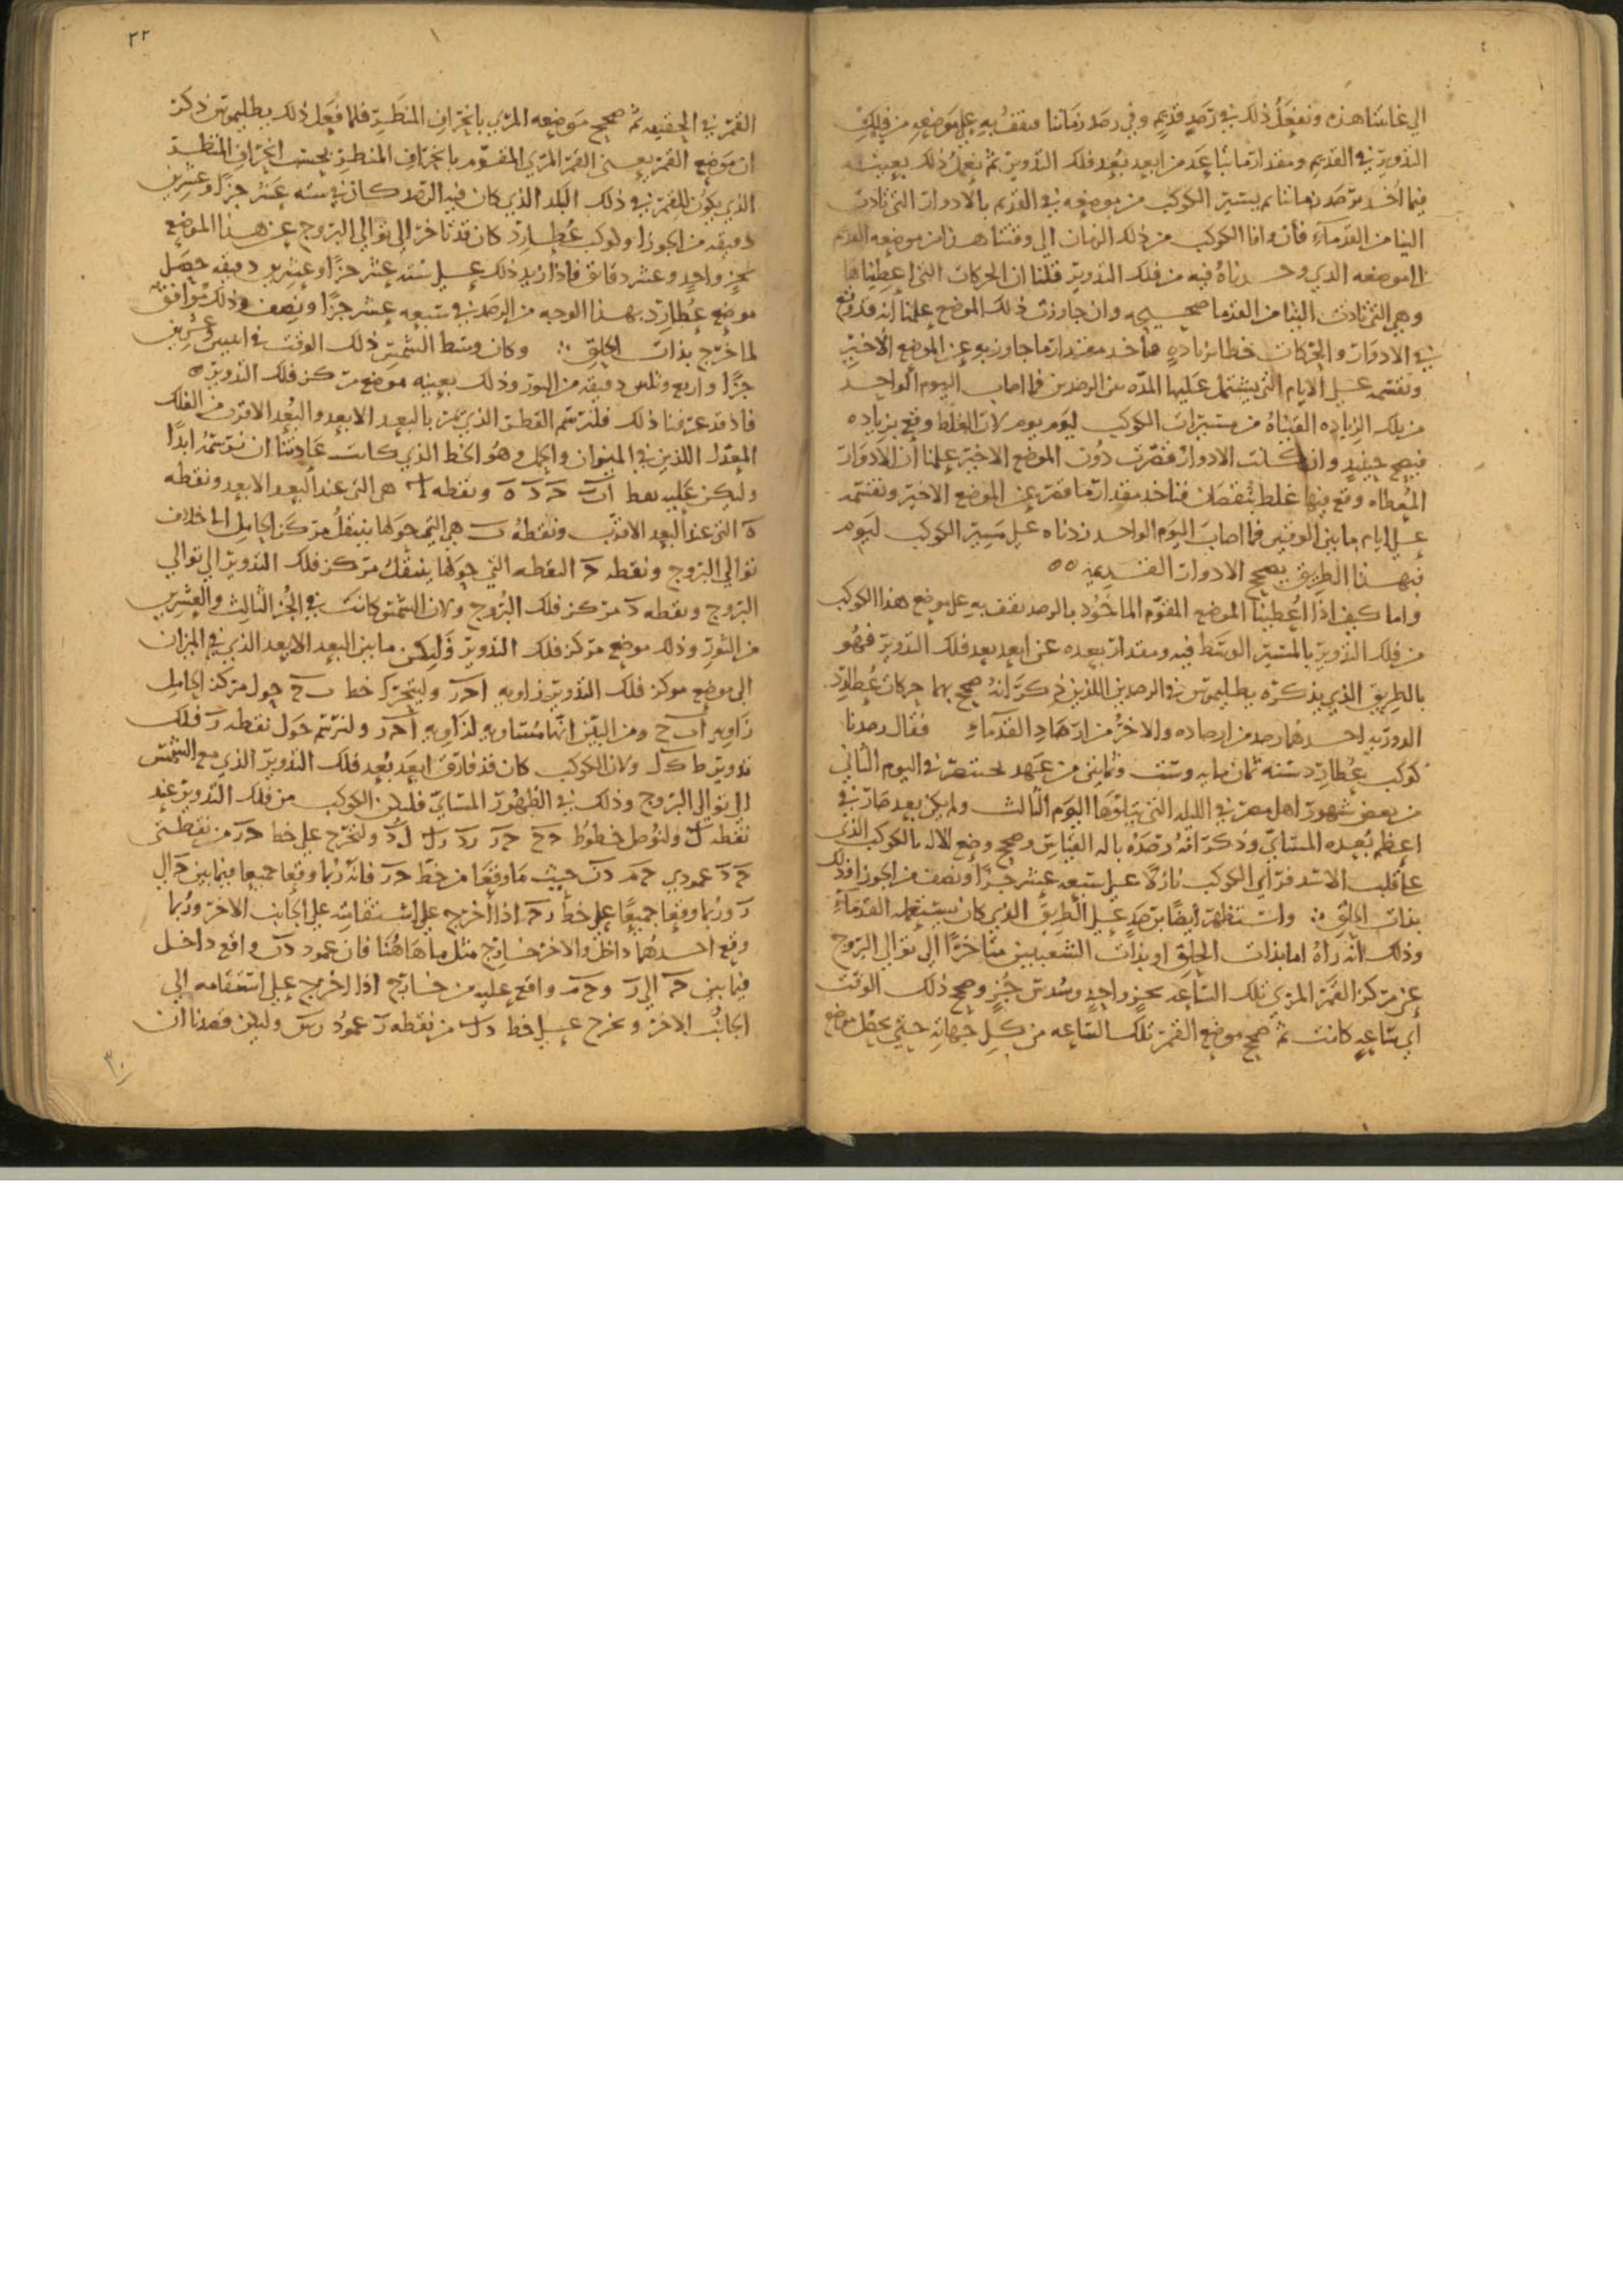 الي غايتنا هذه ونفعل ذلك في رصد قديم وفي رصد زماننا فنقف به على موضعه من فلك
التدوير في القديم ومقدار ما تباعد من ابعد بعد فلك التدوير ثم نعمل ذلك بعينه
فيما اخذ برصد زماننا ثم بسير الكوكب من موضعه في القديم بالادوار التي تادت
الينا من القدماء فان وافا الكوكب من ذلك الزمان الي وقتنا هذا من موضعه القديم
الا موضعه الذي وجدناه فيه من فلك التدوير قلنا ان الحركات التي اعطيناها
وهي التي تادت الينا من القدما صحيحه وان جاوزت ذلك الموضع علمنا انه قد وقع
في الادوار والحركات خطا بزياده فناخذ مقدار ما جاوز به عن الموضع الاخير
ونقسمه على الايام التي يشتمل عليها المده بين الرصدين فما اصاب اليوم الواحد
من تلك الزياده القيناه من مسيرات الكوكب ليوم يوم لان الغلط وقع بزياده
فيصح حينيد وان كانت الادوار قصرت دون الموضع الاخير علمنا ان الادوار
المعطاه وقع فيها غلط بنقصان فناخذ مقدار ما قصر عن الموضع الاخير ونقسمه
على ايام ما بين الوقتين فما اصاب اليوم الواحد زدناه على مسير الكوكب ليوم
فبهذا الطريق يصح الادوار القديمه ٥٥
واما كيف اذا اعطينا الموضع المقوم الماخوذ بالرصد نقف به على موضع هذا الكوكب
من فلك التدوير بالمسير الوسط فيه ومقدار بعده عن ابعد بعد فلك التدوير فهو
بالطريق الذي يذكره بطليموس في الرصدين اللذين ذكر انه صحح بهما حركات عطارد
الدوريه احدهما رصد من ارصاده والاخر من ارصاد القدماء فقال رصدنا
كوكب عطارد سنه ثمان مايه وست وثمانين من عهد بختنصر في اليوم الثاني
من بعض شهور اهل مصر في الليله التي يتلوها اليوم الثالث ولم يكن بعد صار في
اعظم بعده المسايي وذكر انه رصده باله القياس وصحح وضع الاله بالكوكب الذي
على قلب الاسد فراي الكوكب نازلا على سبعه عشر جزا ونصف من الجوزا فذلك
بذات الحلق ⁘ واستظهر ايضا برصد على الطريق الذي كان يستعمله القدماء
وذلك انه راه اما بذات الحلق او بذات الشعبتين متاخرا الي توالي البروج
عن مركز القمر المري تلك الساعه بجز واحد وسدس جز وصحح ذلك الوقت
اي ساعه كانت ثم صحح موضع القمر تلك الساعه من كل جهاته حتي يحصل موضع
٢٢
القمر في الحقيقه ثم صحح موضعه المري بانحراف المنظر فلما فعل ذلك بطليموس ذكر
ان موضع القمر يعني القمر المري المقوم بانحراف المنظر بحسب انحراف المنظر
الذي يكون للقمر في ذلك البلد الذي كان فيه الرصد كان في سته عشر جزا وعشرين
دقيقه من الجوزا وكوكب عطارد كان قد تاخر الي توالي البروج عن هذا الموضع
بجز واحد وعشر دقائق فاذا زيد ذلك على سته عشر جزا وعشرين دقيقه حصل
موضع عطارد بهذا الوجه من الرصد في سبعه عشر جزا ونصف وذلك موافق
لما خرج بذات الحلق ⁘ وكان وسط الشمس ذلك الوقت في اثنين وعشرين
جزا واربع وثلثين دقيقه من الثور وذلك بعينه موضع مركز فلك التدوير ٥
فاذ قد عرفنا ذلك فلنرسم القطر الذي يمر بالبعد الابعد والبعد الاقرب من الفلك
المعدل اللذين في الميزان والحمل وهو الخط الذي كانت عادتنا ان نرسمه ابدا
وليكن عليه نقط ا ب ح د ه ونقطه ا هي التي عند البعد الابعد ونقطه
ه التي عند البعد الاقرب ونقطه ب هي التي حولها ينتقل مركز الحامل الى خلاف
توالي البروج ونقطه ح النقطه التي حولها ينتقل مركز فلك التدوير الي توالي
البروج ونقطه د مركز فلك البروج ولان الشمس كانت في الجز الثالث والعشرين
من الثور وذلك موضع مركز فلك التدوير فليكن ما بين البعد الابعد الذي في الميزان
الى موضع مركز فلك التدوير زاويه ا ح ر وليتحرك خط ب ح حول مركز الحامل
زاويه ا ب ح ومن البين انها مساويه لزاويه ا ح ر ولنرسم حول نقطه ر فلك
تدوير ط ك ل ولان الكوكب كان قد فارق ابعد بعد فلك التدوير الذي مع الشمس
الي توالي البروج وذلك في الظهور المسايي فليكن الكوكب من فلك التدوير عند
نقطه ل ولنوصل خطوط ح ح ح ر ر د ر ل ل د ولنخرج على خط ح ر من نقطتي
ح د عمودي ح م د ن حيث ما وقعا من خط ح ر فانه ربما وقعا جميعا فيما بين ح الي
ر وربما وقعا جميعا على خط ر ح اذا اخرج على استقامته على الجانب الاخر وربما
وقع احدهما داخل والاخر خارج مثل ما هاهنا فان عمود د ن واقع داخل
فيما بين ح الي ر و ح م واقع عليه من خارج اذا اخرج على استقامه الي
الجانب الاخر ونخرج على خط د ل من نقطه ر عمود ر س وليكن قصدنا ان
٣٠